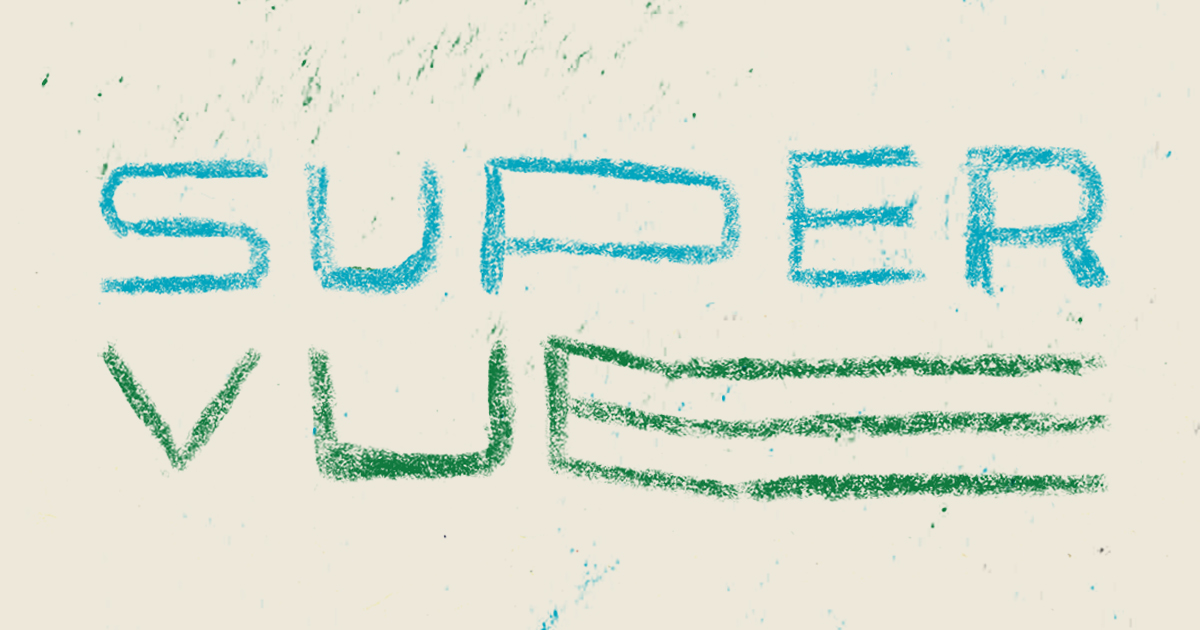 SUPER
VUE